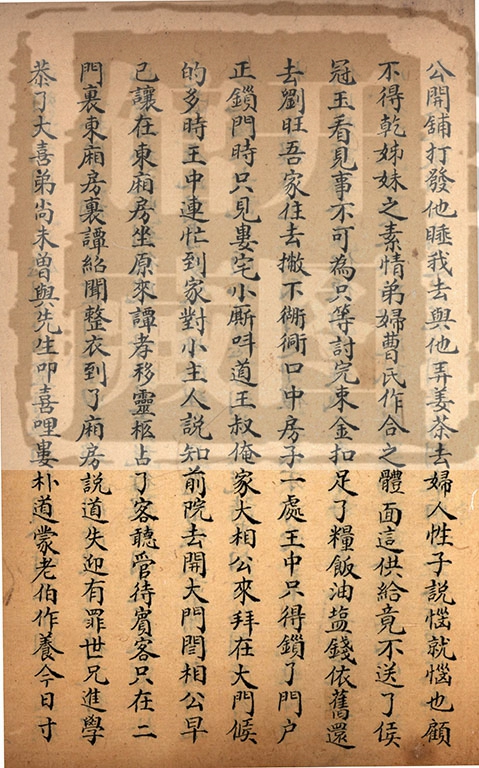 公開舖打發他睡我去與他弄姜茶去婦人性子說惱就惱也顧
不得乾姊妹之素情弟婦曹氏作合之體面這供給竟不送了侯
冠玉看見事不可為只等討完束金扣足了糧飯油盐錢依舊還
去劉旺吾家住去撇下衚衕口中房子一處王中只得鎖了門户
正鎖門時只見婁宅小廝呌道王叔俺家大相公來拜在大門候
的多時王中連忙到家對小主人説知前院去開大門閆相公早
已讓在東廂房坐原來譚孝移靈柩占了客聽管待賓客只在二
門裏東廂房裏譚紹聞整衣到了廂房說道失迎有罪世兄進學
恭了大喜弟尚未曾與先生叩喜哩婁朴道蒙老伯作養今日寸